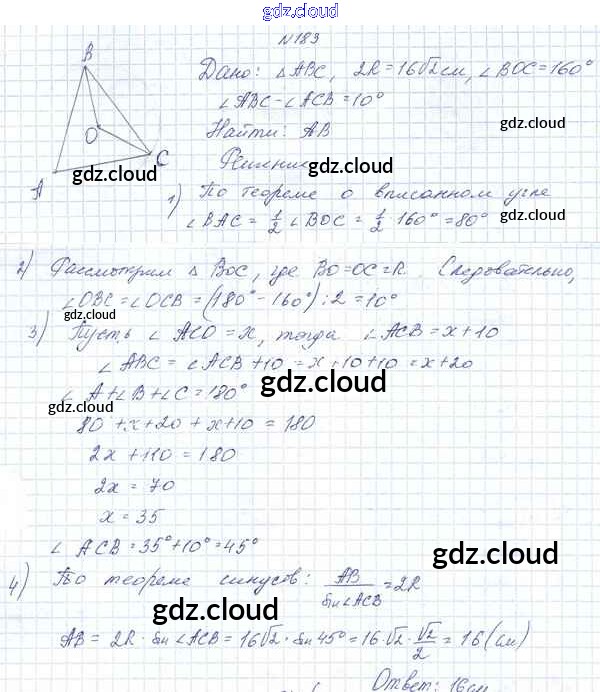 gdz.cloud
N183
B
Дано: △ABC, 2R=16√2см, ∠BOC=160°
∠ABC-∠ACB=10°
gdz.cloud
Найти: AB
O
Решение
C
gdz.cloud
gdz.cloud
A
1) По теореме о вписанном угле
∠BAC = 1/2 ∠BOC = 1/2 160° = 80°
gdz.cloud
2) Рассмотрим △ BOC, где BO=OC=R. Следовательно,
∠OBC=∠OCB=(180°-160°):2=10°
gdz.cloud
3) Пусть ∠ ACO = x, тогда ∠ACB=x+10
∠ABC = ∠ACB+10 = x+10+10 = x+20
gdz.cloud
∠A+∠B+∠C=180°
gdz.cloud
80 + x+20 + x+10 = 180
2x +110 = 180
2x = 70
x = 35
∠ ACB = 35°+10°=45°
gdz.cloud
4) По теореме синусов: AB/sin∠ACB = 2R
gdz.cloud
AB = 2R · sin ∠ACB = 16√2 · sin 45° = 16·√2·√2/2 = 16 (см)
gdz.cloud
Ответ: 16см